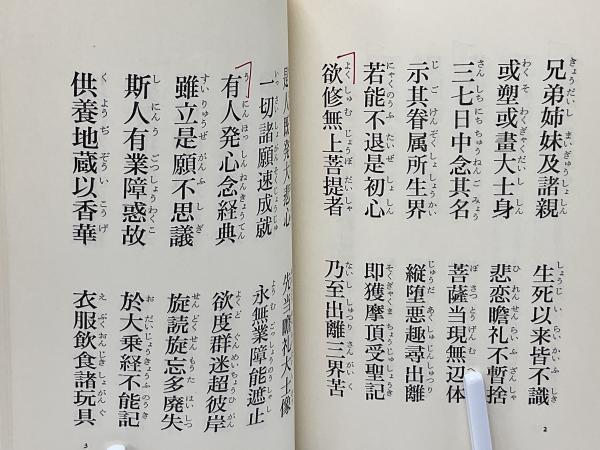 兄弟姉妹及諸親　生死以来皆不識
或塑或畫大士身　悲恋瞻礼不暫捨
三七日中念其名　菩薩当現無辺体
示其眷属所生界　縦堕悪趣尋出離
若能不退是初心　即獲摩頂受聖記
欲修無上菩提者　乃至出離三界苦
2
是人既発大悲心　先当瞻礼大士像
一切諸願速成就　永無業障能遮止
有人発心念経典　欲度群迷超彼岸
雖立是願不思議　旋読旋忘多廃失
斯人有業障惑故　於大乗経不能記
供養地蔵以香華　衣服飲食諸玩具
3